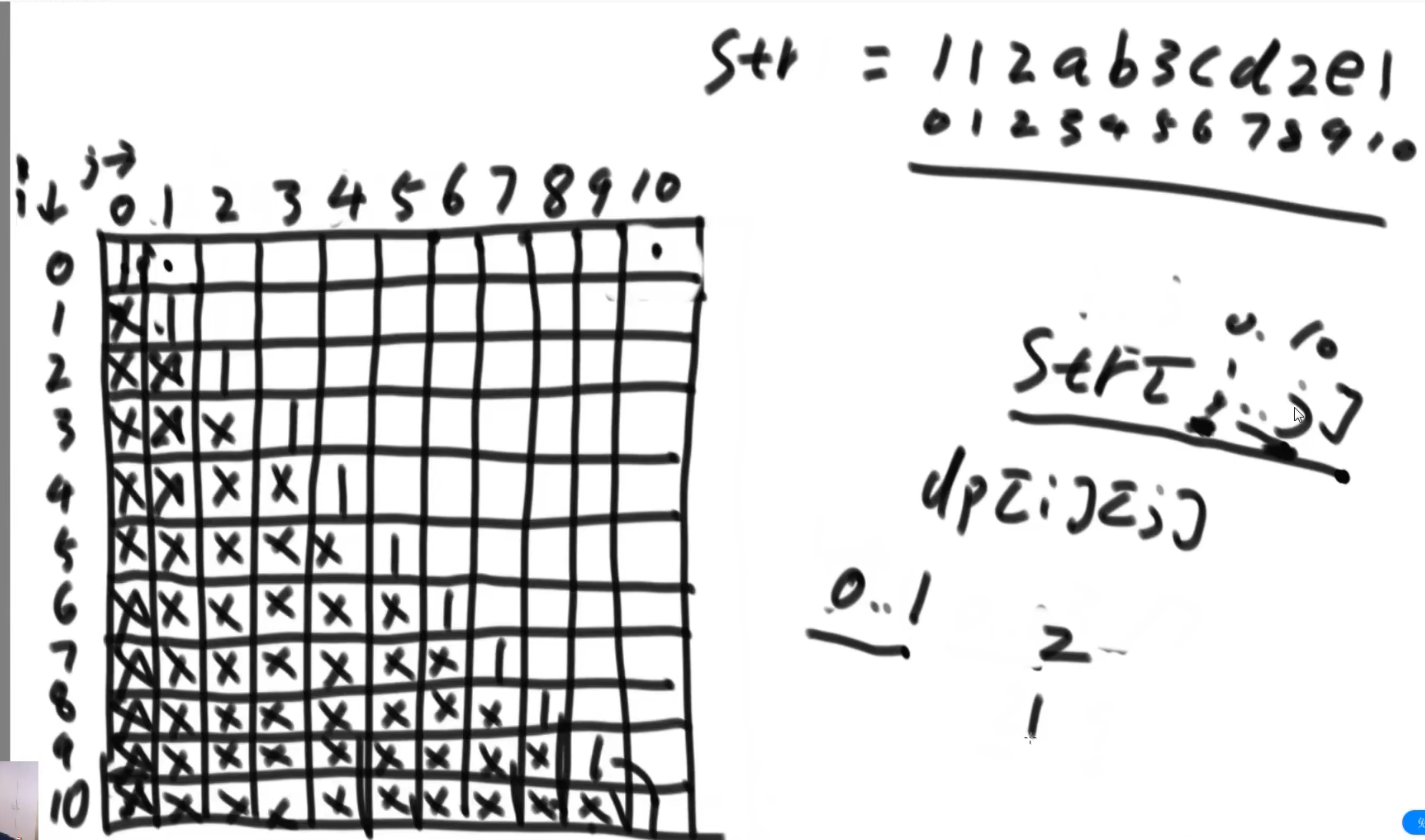 Str = 112ab3cd2e1
0 1 2 3 4 5 6 7 8 9 10
i↓ j→
0 1 2 3 4 5 6 7 8 9 10
0 1 . .
1 X . 1
2 X X 1
3 X X X 1
4 X X X X 1
5 X X X X X 1
6 X X X X X X 1
7 X X X X X X X 1
8 X X X X X X X X 1
9 X X X X X X X X X 1
10 X X X X X X X X X X 1
0. 10
Str[i..j]
dp[i][j]
0..1
2
1